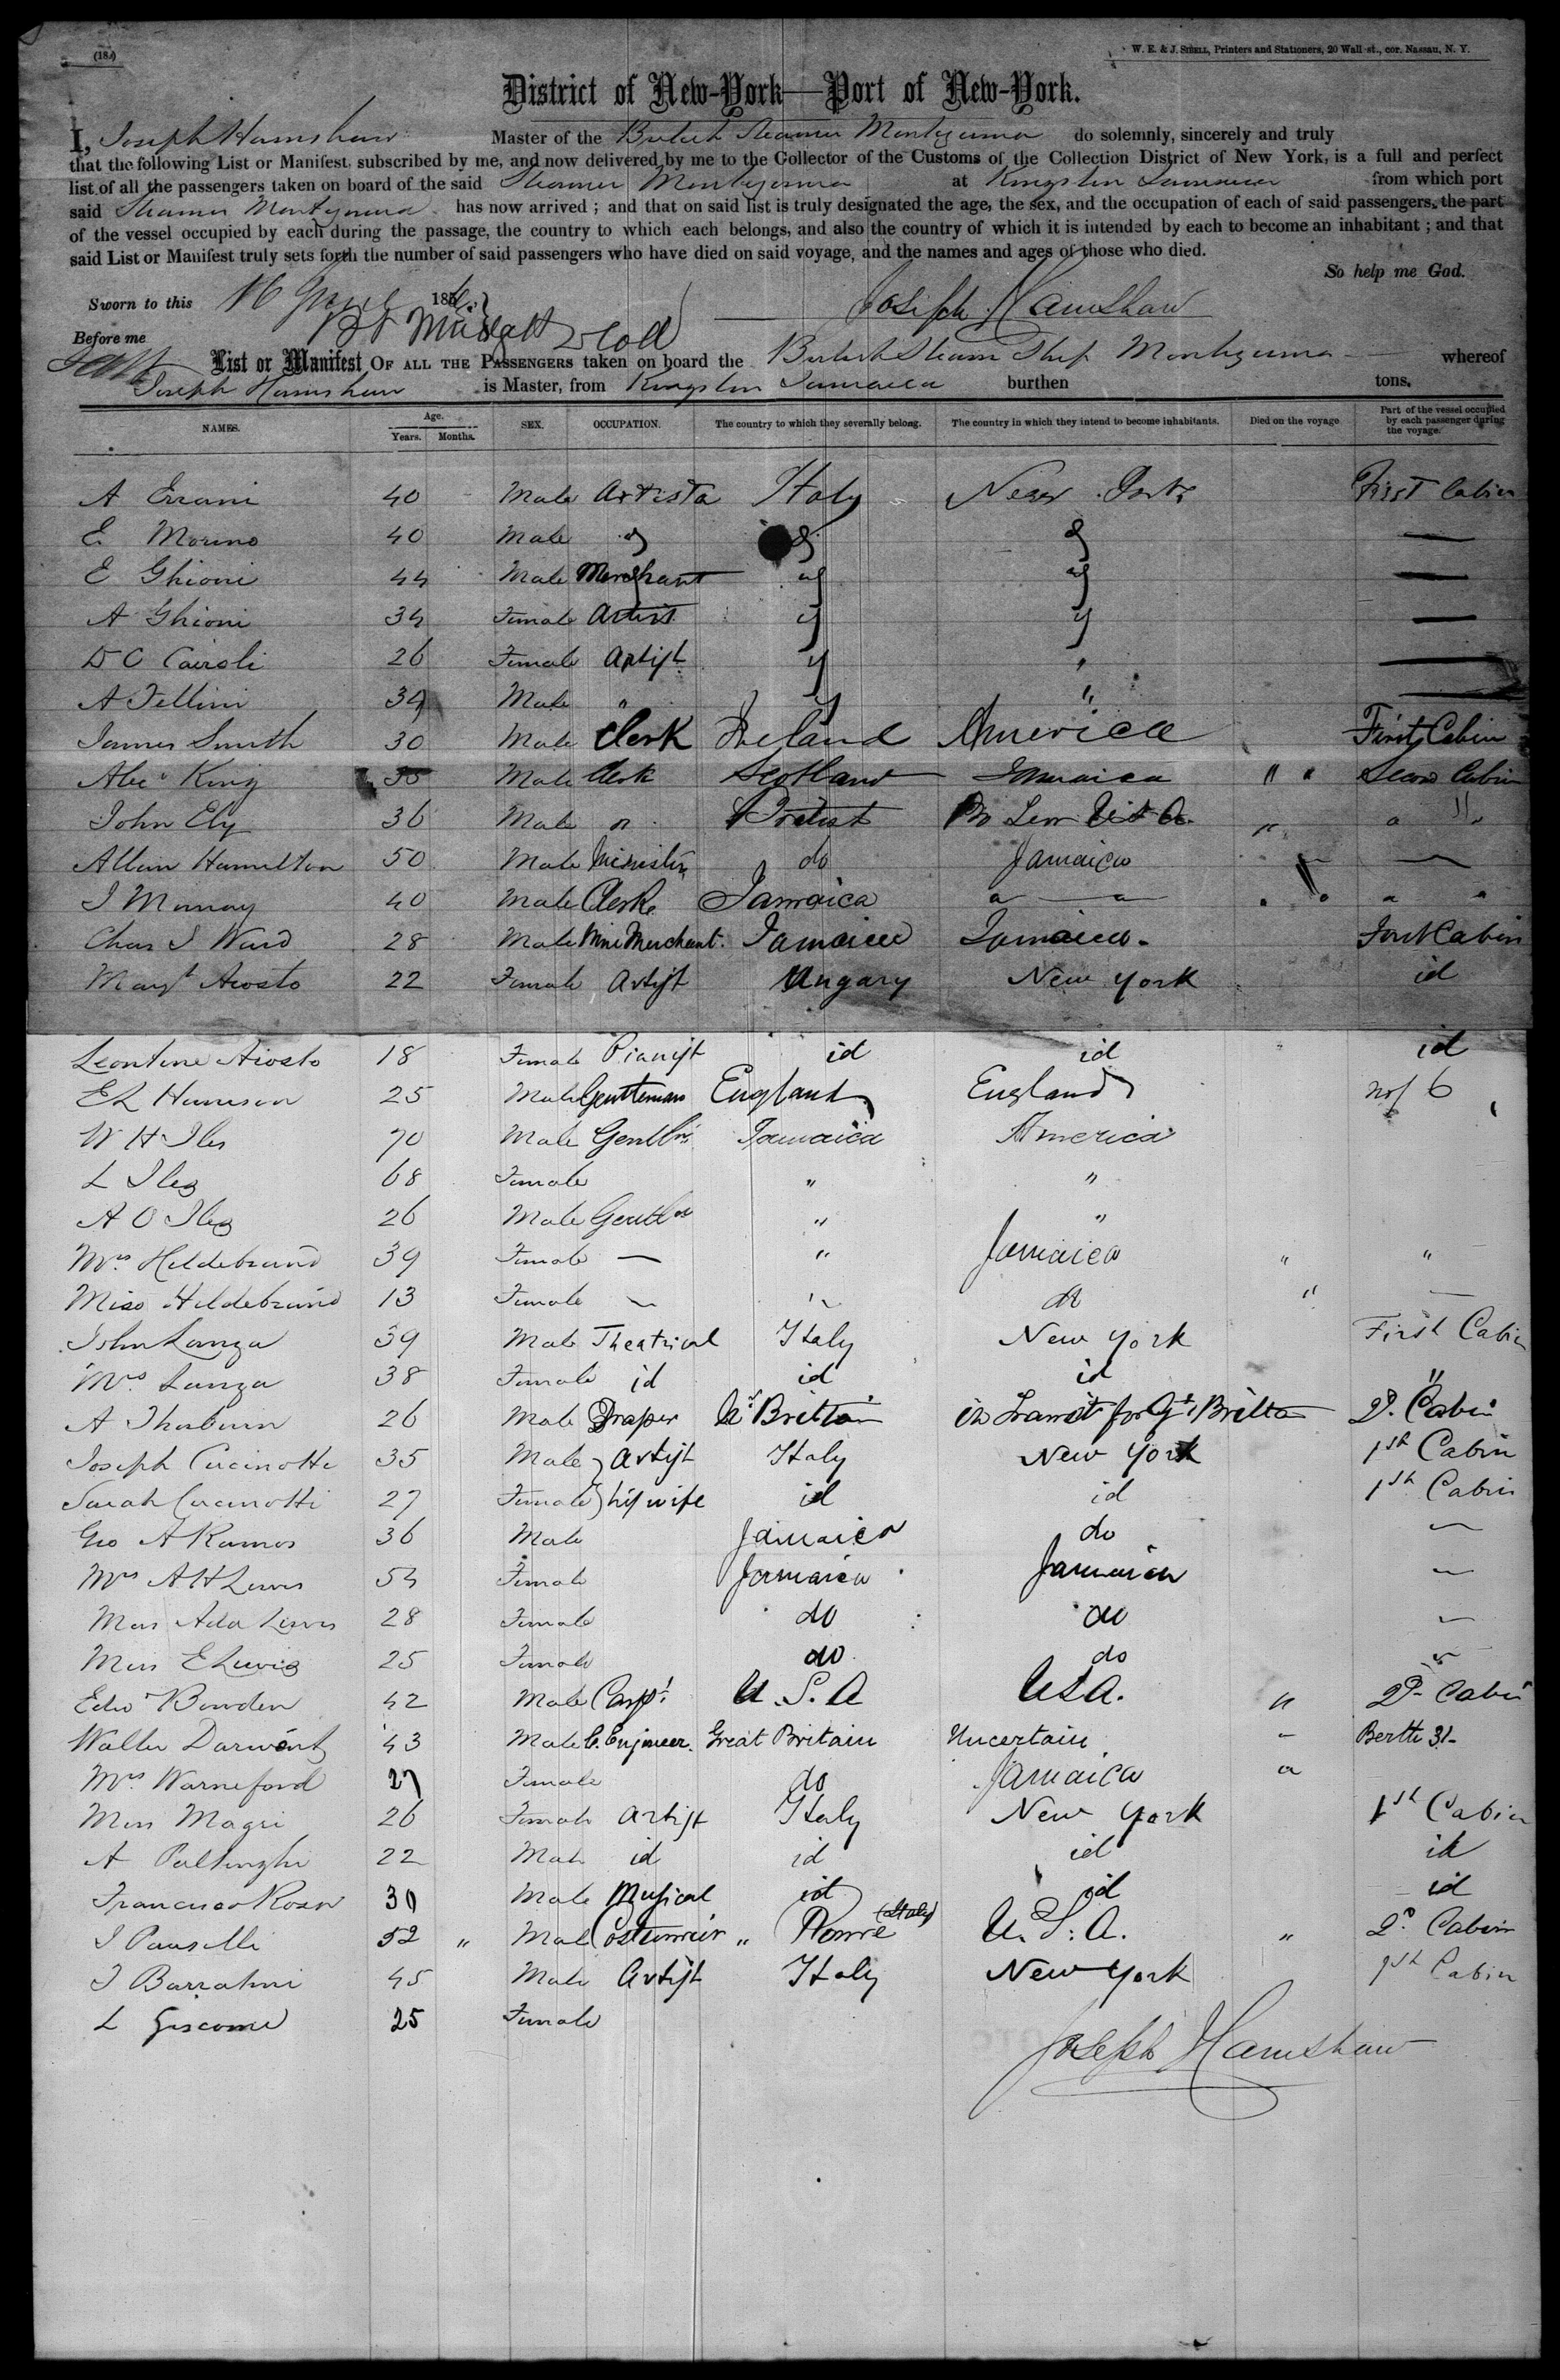 (18.)
W. E. & J. SIBELL, Printers and Stationers, 20 Wall-st., cor. Nassau, N. Y.
District of New-York—Port of New-York.
I, Joseph Hamshaw Master of the British Steamer Montezuma do solemnly, sincerely and truly
that the following List or Manifest, subscribed by me, and now delivered by me to the Collector of the Customs of the Collection District of New York, is a full and perfect
list of all the passengers taken on board of the said Steamer Montezuma at Kingston Jamaica from which port
said Steamer Montezuma has now arrived; and that on said list is truly designated the age, the sex, and the occupation of each of said passengers, the part
of the vessel occupied by each during the passage, the country to which each belongs, and also the country of which it is intended by each to become an inhabitant; and that
said List or Manifest truly sets forth the number of said passengers who have died on said voyage, and the names and ages of those who died.
So help me God.
Sworn to this 16 186
Joseph Hamshaw
Before me
List or Manifest OF ALL THE PASSENGERS taken on board the British Steam Ship Montezuma whereof
Joseph Hamshaw is Master, from Kingston Jamaica burthen tons.
NAMES. Age. Years. Months. SEX. OCCUPATION. The country to which they severally belong. The country in which they intend to become inhabitants. Died on the voyage Part of the vessel occupied by each passenger during the voyage.
A Errani 40 Male Artista Italy New York First Cabin
E. Morino 40 Male
E Ghioni 44 Male Merchant
A Ghioni 34 Female Artist
D C Cairoli 26 Female Artist "
A Tellini 34 Male " "
James Smith 30 Male Clerk Ireland America First Cabin
Alec King Male Clerk Scotland Jamaica " " Second Cabin
John Ely 36 Male " "
Allan Hamilton 50 Male Minister do Jamaica
J Murray 40 Male Clerk Jamaica " "
Chas J Ward 28 Male Wine Merchant. Jamaica Jamaica. First Cabin
Mayt Aiosto 22 Female Artist Ungary New York id
Leontine Aiosto 18 Female Pianist id id id
E L Harrison 25 Male Gentleman England England No 6
W H Iles 70 Male Gentln Jamaica America
L Iles 68 Female " "
A O Iles 26 Male Gentln " "
Mrs Hildebrand 39 Female — " Jamaica " "
Miss Hildebrand 13 Female " do "
John Lanza 39 Male Theatrical Italy New York First Cabin
Mrs Lanza 38 Female id id id "
A Thorburn 26 Male Draper Gt Brittain in Transit for Gt Brittain 2d. Cabin
Joseph Cucinotti 35 Male Artist Italy New York 1st Cabin
Sarah Cucinotti 27 Female his wife id id 1st Cabin
Geo A Ramos 36 Male Jamaica do
Mrs A H Lewis 54 Female Jamaica Jamaica
Miss Ada Lewis 28 Female do do
Miss E Lewis 25 Female do do
Edw Bowden 42 Male Carpr. U. S. A USA. " 2d Cabin
Walter Darwent 43 Male C. Engineer. Great Britain Uncertain Berth 31
Mrs Warneford 27 Female do Jamaica "
Miss Magri 26 Female Artist Italy New York 1st Cabin
A 22 Male id id id id
Francisco Rosa Male Musical id id id
J 52 " Male Costumeir " Rome (Italy) U. S. A. " 2d. Cabin
J 45 Male Artist Italy New York 1st Cabin
L Giscome 25 Female
Joseph Hamshaw